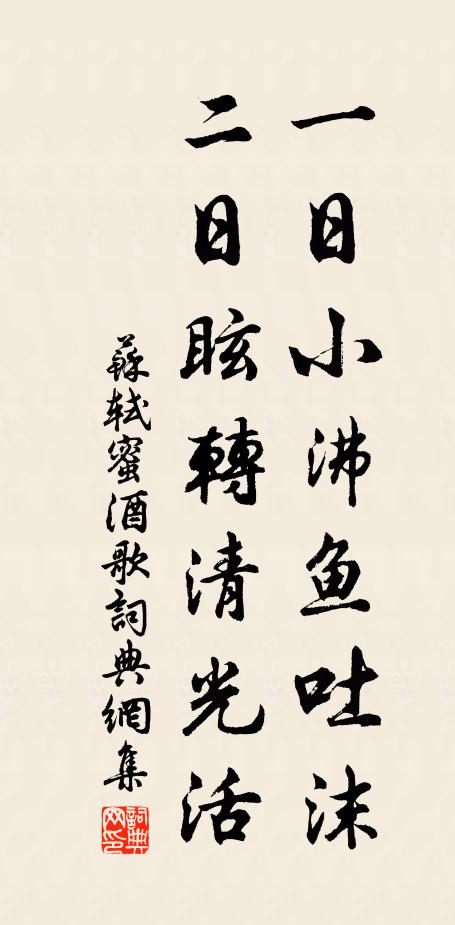 一日小沸鱼吐沫
二日眩轉清光活
蘇軾蜜酒歌詞典網集
詞典网印